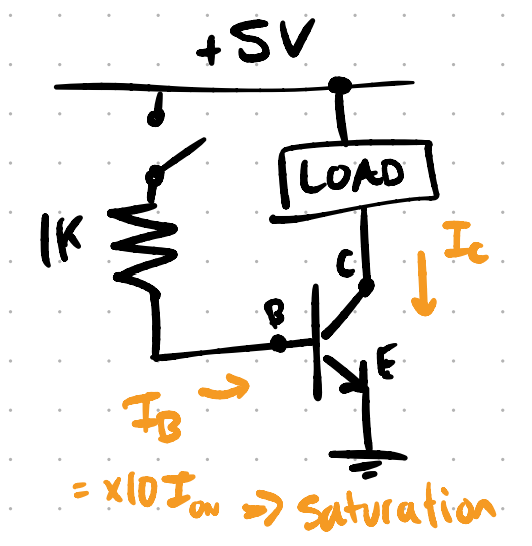 +5V
LOAD
1K
C
I_C
B
E
I_B
= x10 I_ON => saturation